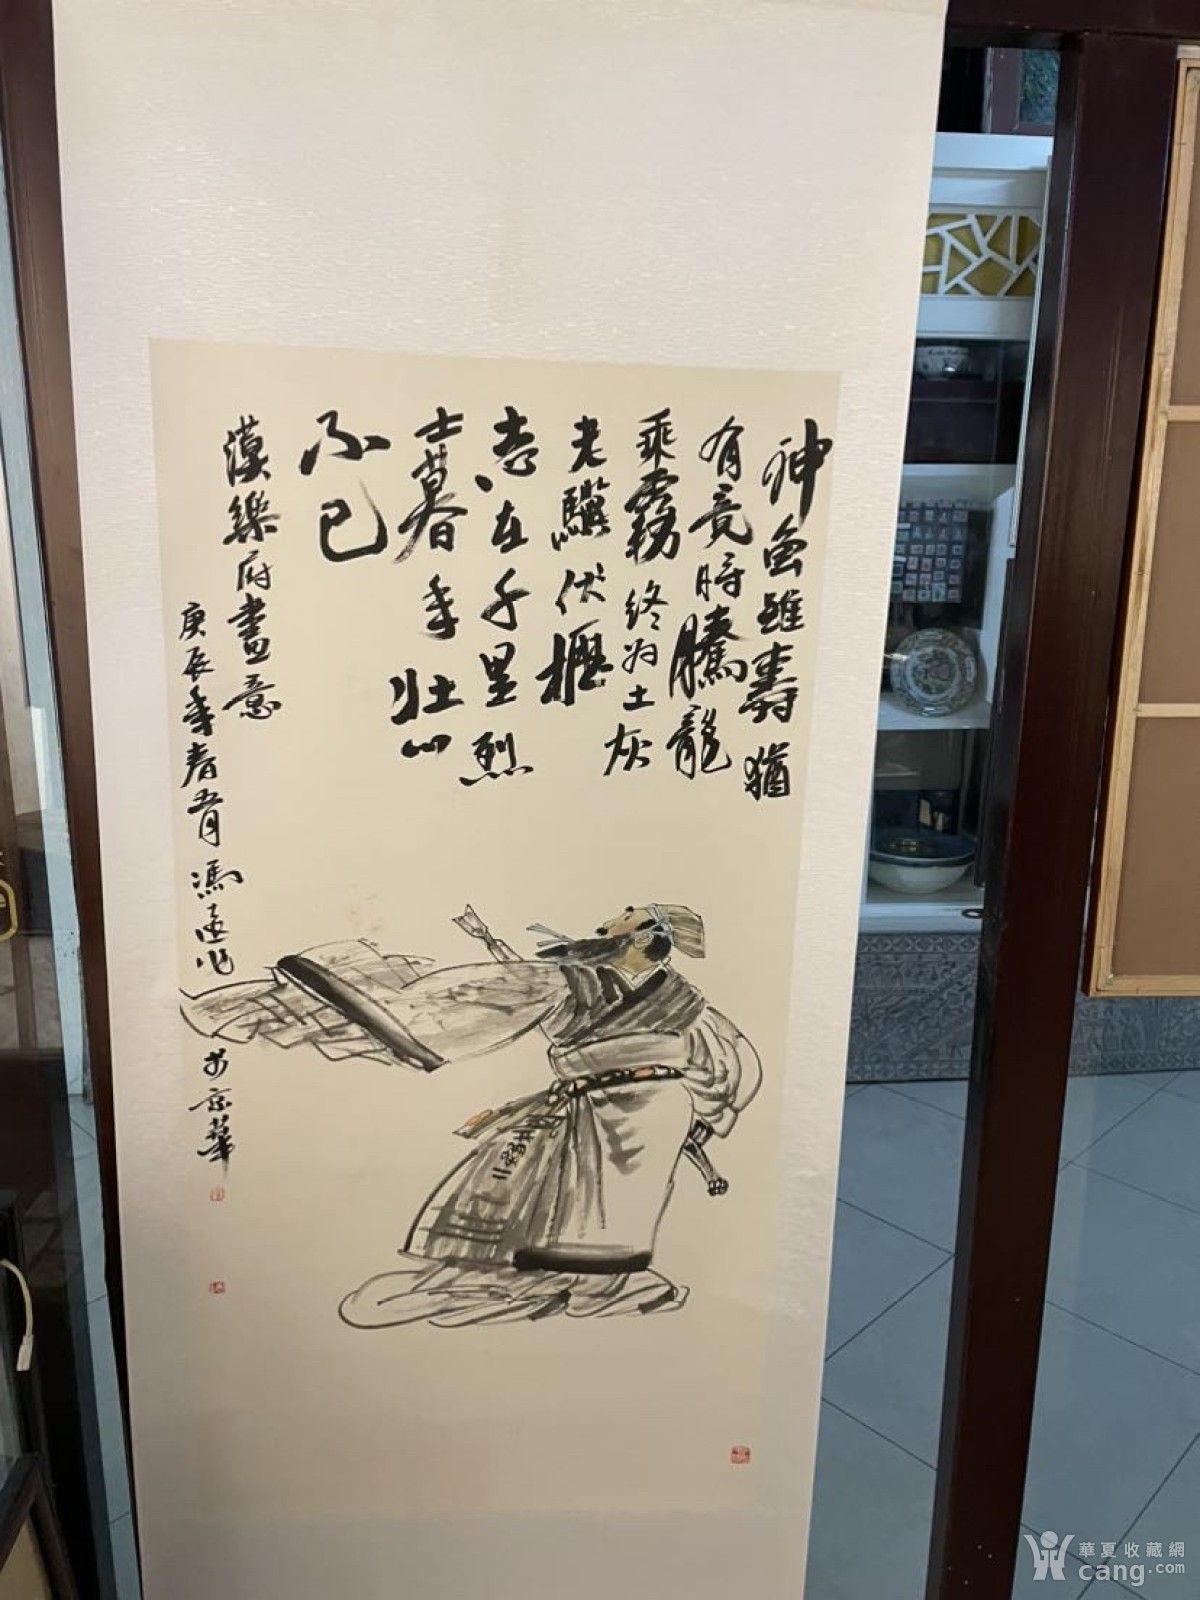 神魚雖壽猶
有竟時騰龍
乘霧終为土灰
老驥伏櫪
志在千里烈
士暮年壮心
不已
漢樂府畫意
庚辰年春 馮遠作 於京華
華夏收藏網
cang.com